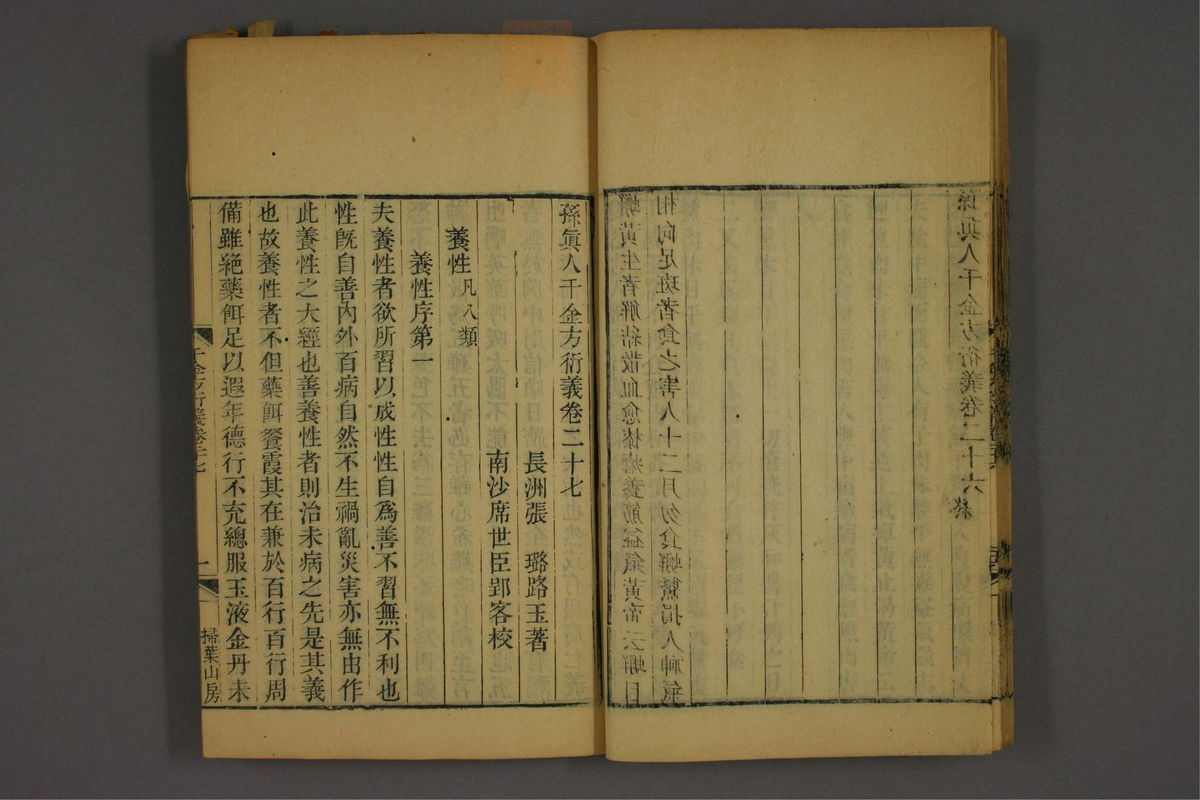 蟹黃生者解結散血愈漆瘡養筋益氣黃帝云蟹目
相向足斑者食之害人十二月勿食蟹鱉損人神氣
孫眞人千金方衍義卷二十六終
孫眞人千金方衍義卷二十七
長洲張　璐路玉著
南沙席世臣郢客校
養性凡八類
養性序第一
夫養性者欲所習以成性性自爲善不習無不利也
性旣自善內外百病自然不生禍亂災害亦無由作
此養性之大經也善養性者則治未病之先是其義
也故養性者不但藥餌餐霞其在兼於百行百行周
備雖絶藥餌足以遐年德行不充總服玉液金丹未
千金方衍義卷二十七
一
掃葉山房